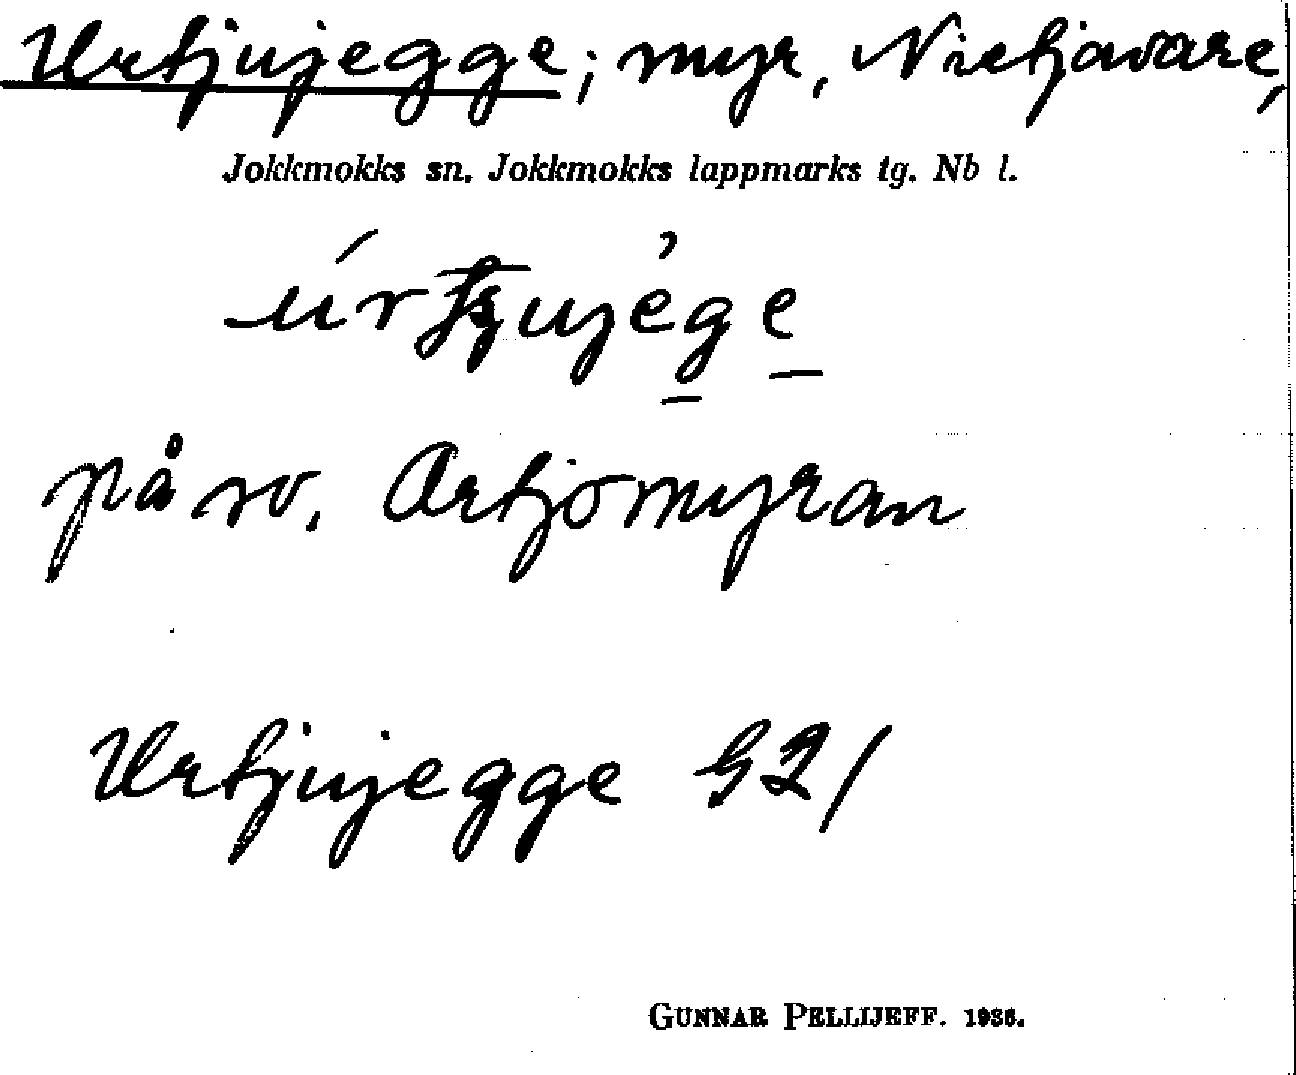 Urtjujegge; myr, Nietjavare,
Jokkmokks sn. Jokkmokks lappmarks tg. Nb l.
på sv. Artjomyran
Urtjujegge G2/
GUNNAR PELLIJEFF. 1936.